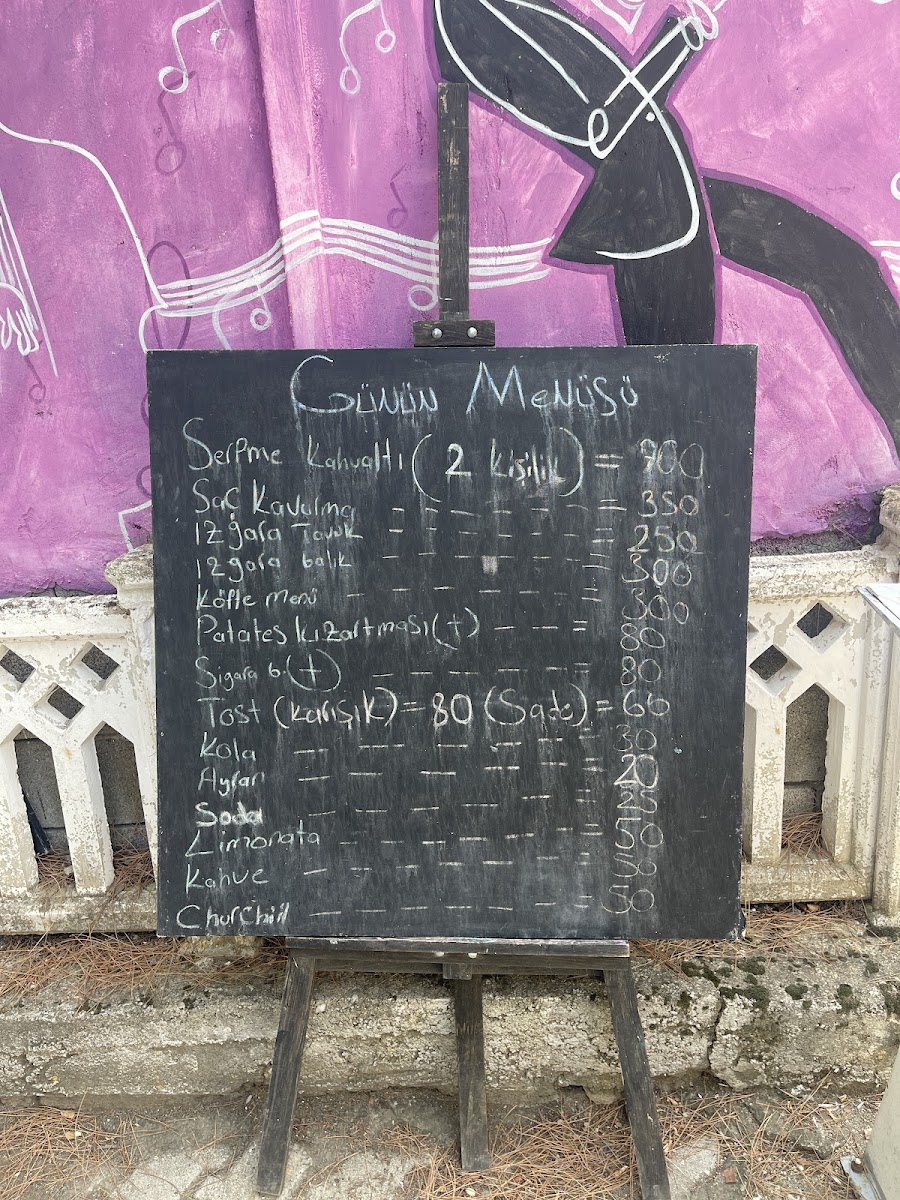 GÜNÜN MENÜSÜ
Serpme Kahvaltı (2 kişilik) = 900
Saç Kavurma = - - - - - = 350
Izgara Tavuk = - - - - - = 250
Izgara balık = - - - - - = 300
Köfte menü - - - - - = 300
Patates kızartması (+) - - - = 80
Sigara b. (+) - - - - - = 80
Tost (karışık) = 80 (Sade) = 60
Kola - - - - - = 30
Ayran - - - - - = 20
Soda - - - - - =
Limonata - - - - - = 50
Kahve - - - - - = 50
Churchill - - - - - = 50